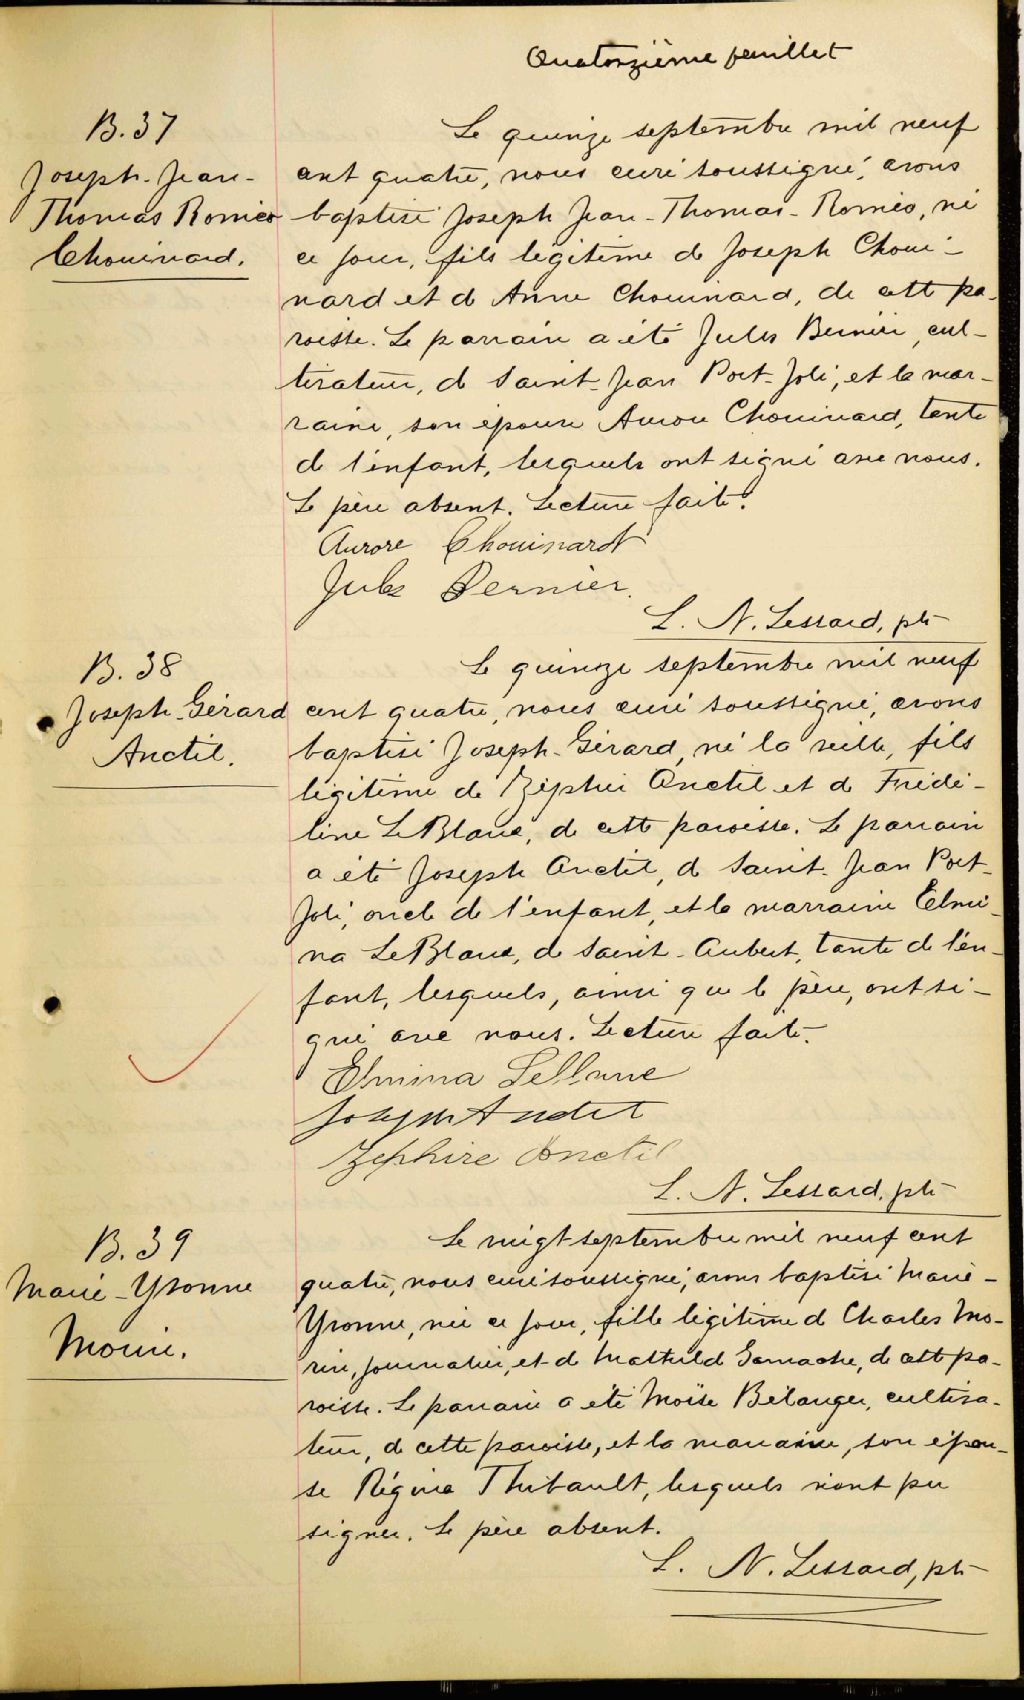 Quatorzième feuillet
B. 37
Joseph-Jean-
Thomas Roméo
Chouinard.
Le quinze septembre mil neuf
cent quatre, nous curé soussigné, avons
baptisé Joseph Jean-Thomas-Roméo, né
ce jour, fils légitime de Joseph Choui-
nard et de Anna Chouinard, de cette pa-
roisse. Le parrain a été Jules Bernier, cul-
tivateur, de Saint-Jean Port-Joli, et la mar-
raine, son épouse Aurore Chouinard, tante
de l'enfant, lesquels ont signé avec nous.
Le père absent. Lecture faite.
Aurore Chouinard
Jules Bernier.
L. N. Lessard, ptr
B. 38
Joseph-Gérard
Anctil.
Le quinze septembre mil neuf
cent quatre, nous curé soussigné, avons
baptisé Joseph-Gérard, né la veille, fils
légitime de Zéphir Anctil et de Frédé-
line LeBlanc, de cette paroisse. Le parrain
a été Joseph Anctil, de Saint-Jean Port-
Joli, oncle de l'enfant, et la marraine Elmi-
na LeBlanc, de Saint-Aubert, tante de l'en-
fant, lesquels, ainsi que le père, ont si-
gné avec nous. Lecture faite.
Elmina LeBlanc
Joseph Anctil
Zephire Anctil
L. N. Lessard, ptr
B. 39
Marie-Yvonne
Morin.
Le vingt septembre mil neuf cent
quatre, nous curé soussigné, avons baptisé Marie-
Yvonne, née ce jour, fille légitime de Charles Mo-
rin, journalier, et de Mathilde Gamache, de cette pa-
roisse. Le parrain a été Moïse Bélanger, cultiva-
teur, de cette paroisse, et la marraine, son épou-
se Régina Thibault, lesquels n'ont pu
signer. Le père absent.
L. N. Lessard, ptr